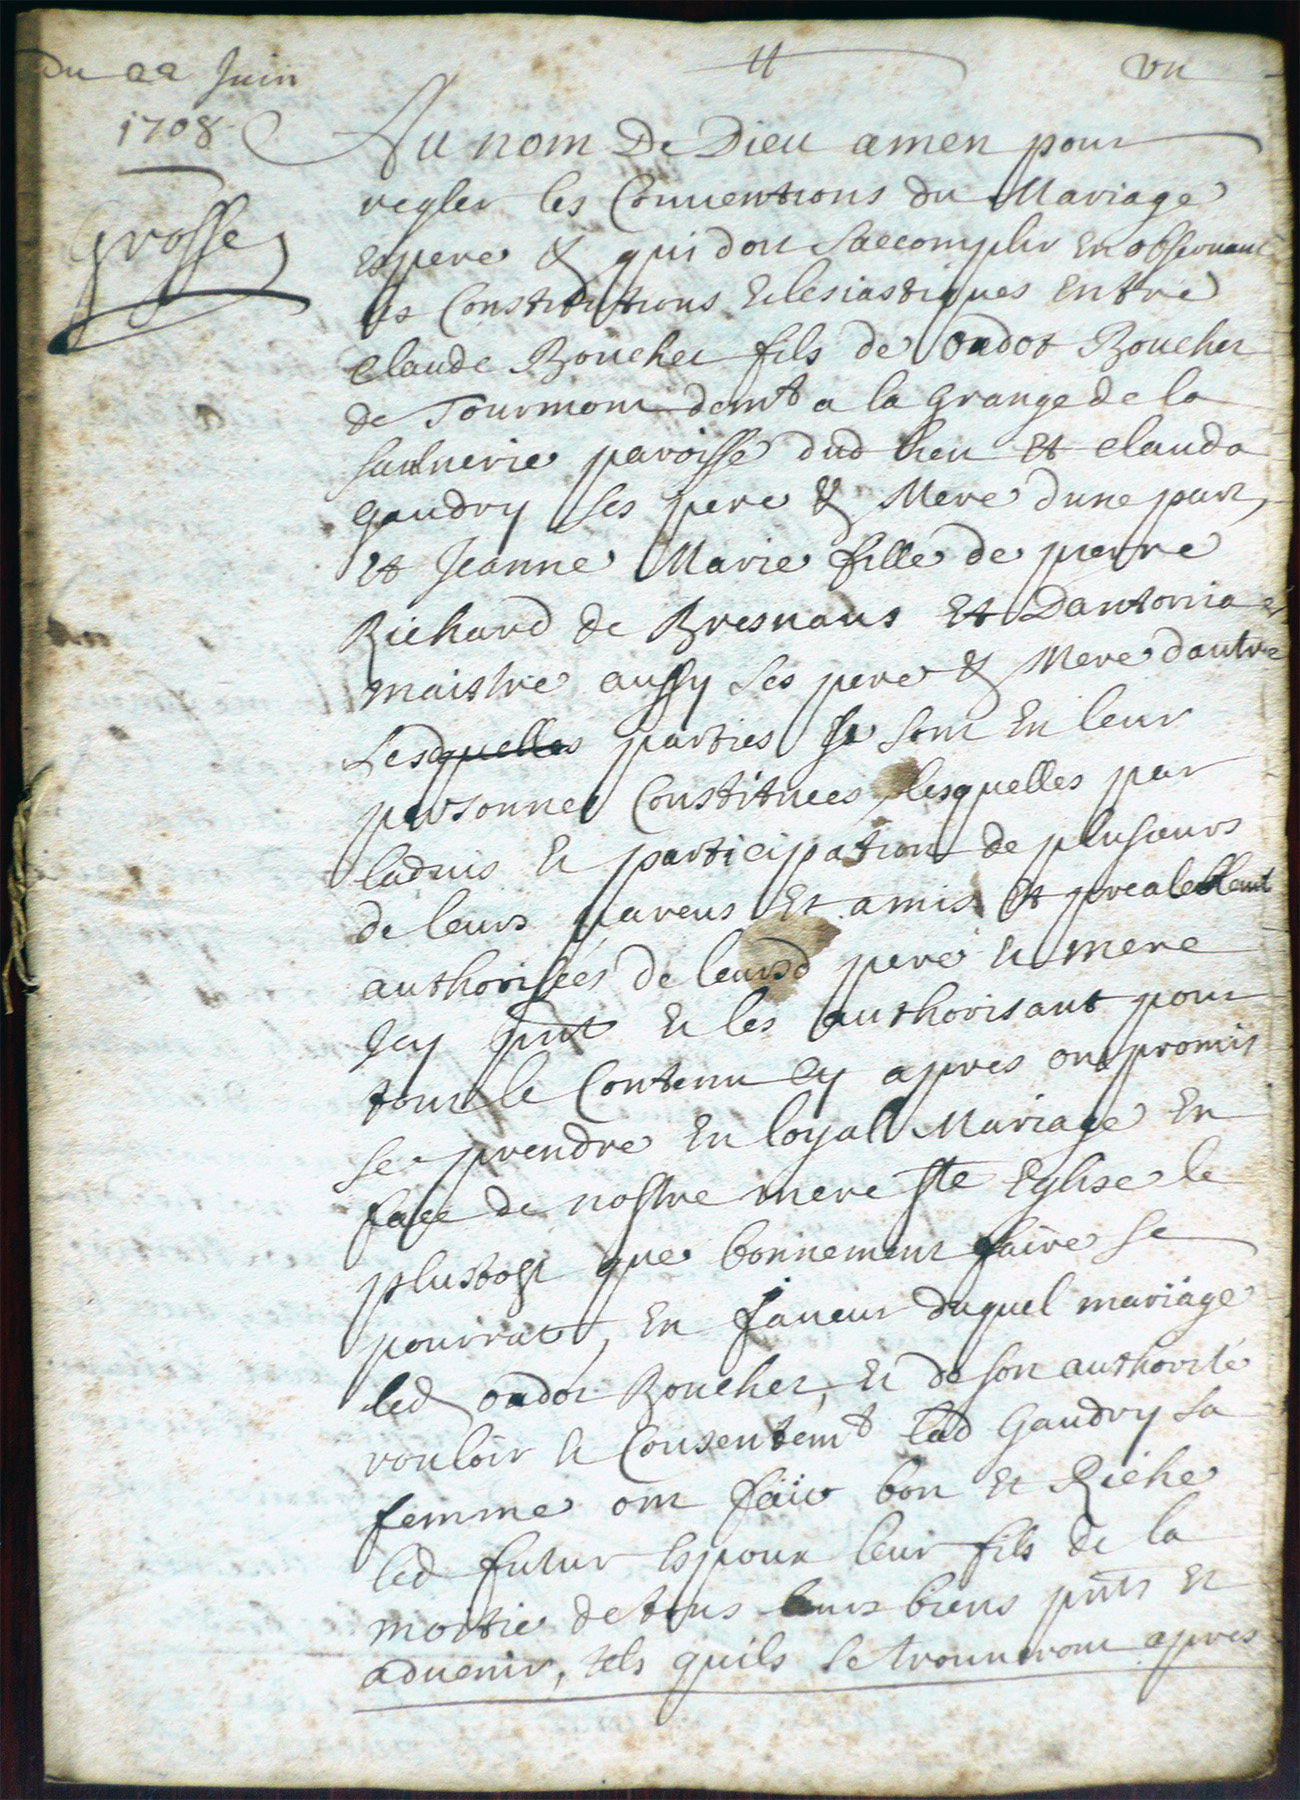 Du 22 Juin
1708
Grosse
vn
Au nom De Dieu amen pour
regler les Conuentions du Mariage
espere & qui doit Saccomplir En obseruant
les Constitutions Eclesiastiques Entre
Claude Boucher fils de Oudot Boucher
de Tourmont demt a la Grange de la
saulnerie paroisse dud lieu Et clauda
Gaudry ses pere & Mere dune part,
Et Jeanne Marie fille de pierre
Richard de Bresnans Et Dantonia
maistre aussy ses pere & Mere dautre
Lesquelles parties se sont En leur
personnes Constituees lesquelles par
laduis Et participation de plusieurs
de leurs parens Et amis Et prealablemt
authorisées de leursd pere Et mere
Icy pnt Et les authorisant pour
tout le Contenu Cy apres ont promis
se prendre En loyal Mariage En
face de nostre mere ste Eglise le
plustost que bonnement faire se
pourrat, En faueur duquel mariäge
led oudot Boucher, Et de son authorité
vouloir Et Consentemt lad Gaudry sa
femme ont fäit bon Et Riche
led futur Espoux leur fils de la
moitie de tous leurs biens pnts Et
aduenir, tels quils se trouueront apres